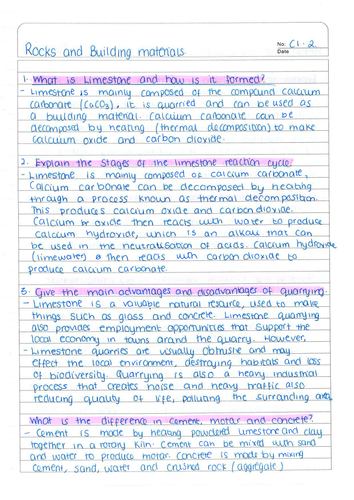 Rocks and Building materials
No: C1.2
Date
1. What is Limestone and how is it formed?
- Limestone is mainly composed of the compound calcium
carbonate (CaCO3), it is quarried and can be used as
a building material. Calcium carbonate can be
decomposed by heating (thermal decomposition) to make
calcium oxide and carbon dioxide.
2. Explain the stages of the limestone reaction cycle.
- Limestone is mainly composed of calcium carbonate,
Calcium carbonate can be decomposed by heating
through a process known as thermal decomposition.
This produces calcium oxide and carbon dioxide.
Calcium oxide then reacts with water to produce
calcium hydroxide, which is an alkali that can
be used in the neutralisation of acids. Calcium hydroxide
(limewater) then reacts with carbon dioxide to
produce calcium carbonate.
3. Give the main advantages and disadvantages of quarrying.
- Limestone is a valuable natural resource, used to make
things such as glass and concrete. Limestone quarrying
also provides employment opportunities that support the
local economy in towns around the quarry. However,
- Limestone quarries are usually obtrusive and may
effect the local environment, destroying habitats and loss
of biodiversity. Quarrying is also a heavy industrial
process that creates noise and heavy traffic also
reducing quality of life, polluting the surrounding area.
What is the difference in cement, motar and concrete?
- Cement is made by heating powdered limestone and clay
together in a rotary kiln. Cement can be mixed with sand
and water to produce motar. Concrete is made by mixing
cement, sand, water and crushed rock (aggregate)